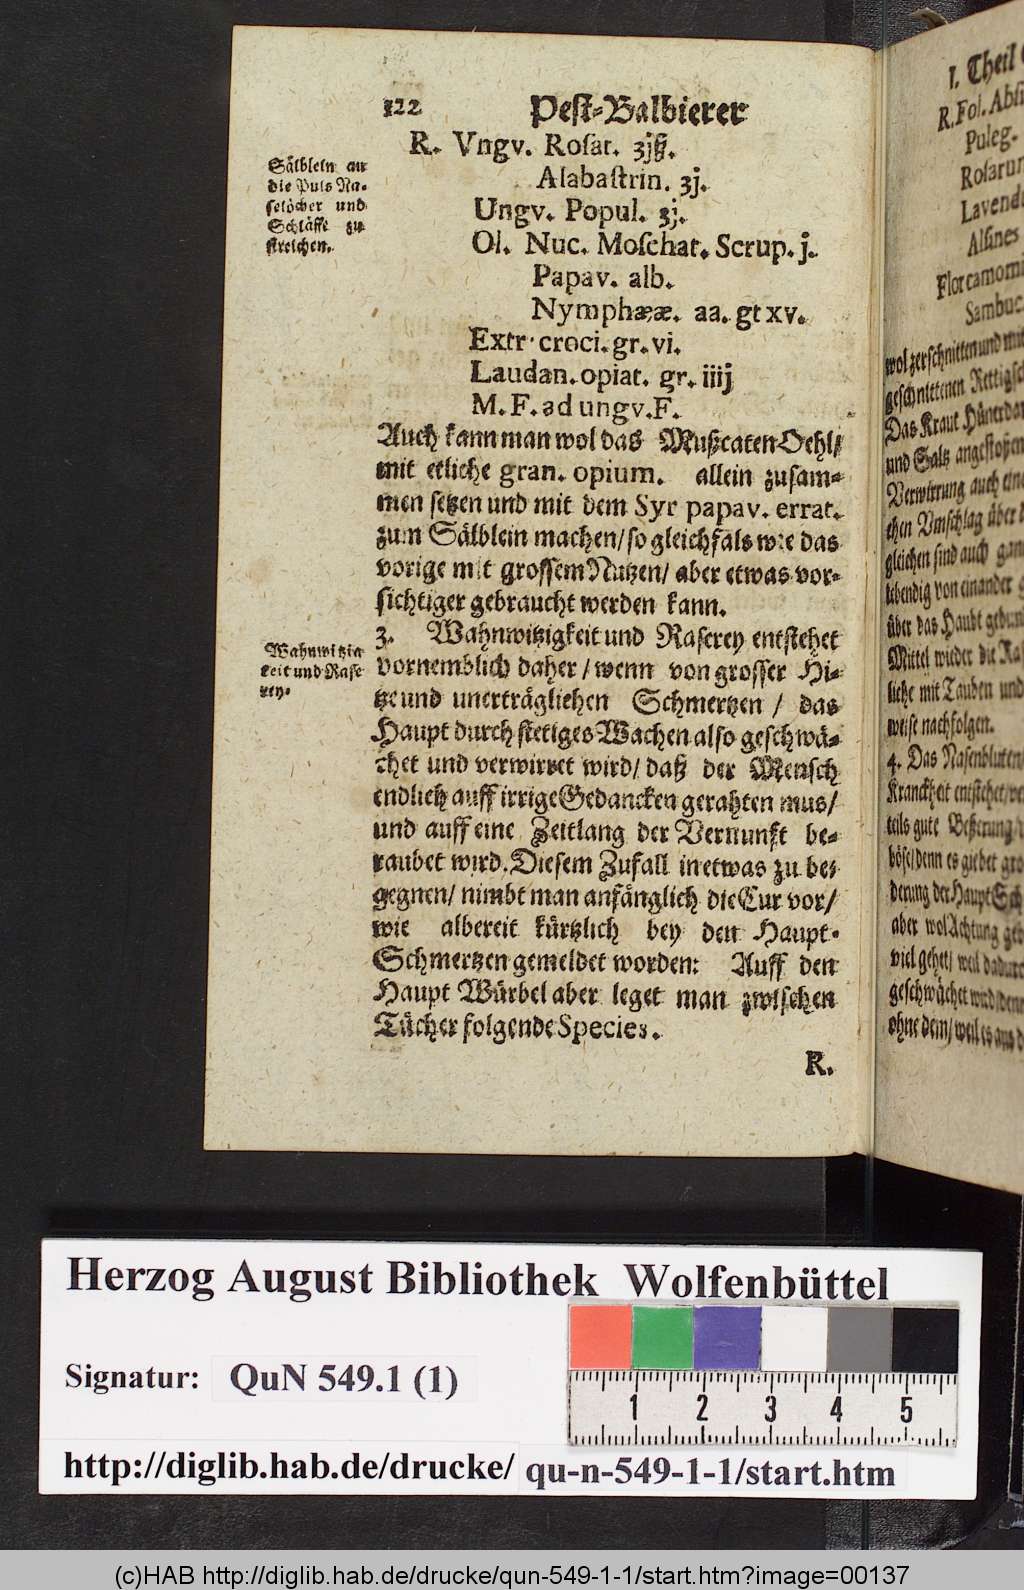 122 Pest-Balbierer
R. Vngv. Rosat. ʒjß.
Alabastrin. ʒj.
Ungv. Popul. ʒj.
Ol. Nuc. Moschat. Scrup. j.
Papav. alb.
Nymphææ. aa. gt xv.
Extr. croci. gr. vi.
Laudan. opiat. gr. iiij
M. F. ad ungv. F.
Sälblein an
die Puls Na-
selöcher und
Schläffe zu
streichen.
Auch kann man wol das Mußcaten Oehl/
mit etliche gran. opium. allein zusam-
men setzen und mit dem Syr papav. errat.
zum Sälblein machen/ so gleichfals wie das
vorige mit grossem Nutzen/ aber etwas vor-
sichtiger gebraucht werden kann.
Wahnwitzig
keit und Rase
rey.
3. Wahnwitzigkeit und Raserey entstehet
vornemblich daher/ wenn von grosser Hi-
tze und unerträgliehen Schmertzen / das
Haupt durch stetiges Wachen also geschwä-
chet und verwirret wird/ daß der Mensch
endlich auff irrige Gedancken gerahten mus/
und auff eine Zeitlang der Vernunft be-
raubet wird. Diesem Zufall in etwas zu be-
gegnen/ nimbt man anfänglich die Cur vor/
wie albereit kürtzlich bey den Haupt-
Schmertzen gemeldet worden: Auff den
Haupt Würbel aber leget man zwischen
Tücher folgende Species.
R.
I. Theil
R. Fol. Absi
Puleg.
Rosarum
Lavend
Alsines
Flor camomi
Sambuc
wol zerschnitten und mit
geschnittenen Rettigsc
Das Kraut Hünerdar
und Saltz angestoßen
Verwirrung auch eine
then Vmschlag über d
gleichen sind auch gan
lebendig von einander g
über das Haubt gebun
Mittel wieder die Ra
liche mit Tauben und
weise nachfolgen.
4. Das Nasenbluten
Kranckheit entstehet/ ve
teils gute Beßerung
böse/ denn es giebet gro
derung der Haupt Sch
aber wol Achtung geb
viel gehet/ weil dadurc
geschwächet wird/ denn
ohne dem/ weil es aus d
Herzog August Bibliothek Wolfenbüttel
Signatur: QuN 549.1 (1)
1 2 3 4 5
http://diglib.hab.de/drucke/ qu-n-549-1-1/start.htm
(c)HAB http://diglib.hab.de/drucke/qun-549-1-1/start.htm?image=00137